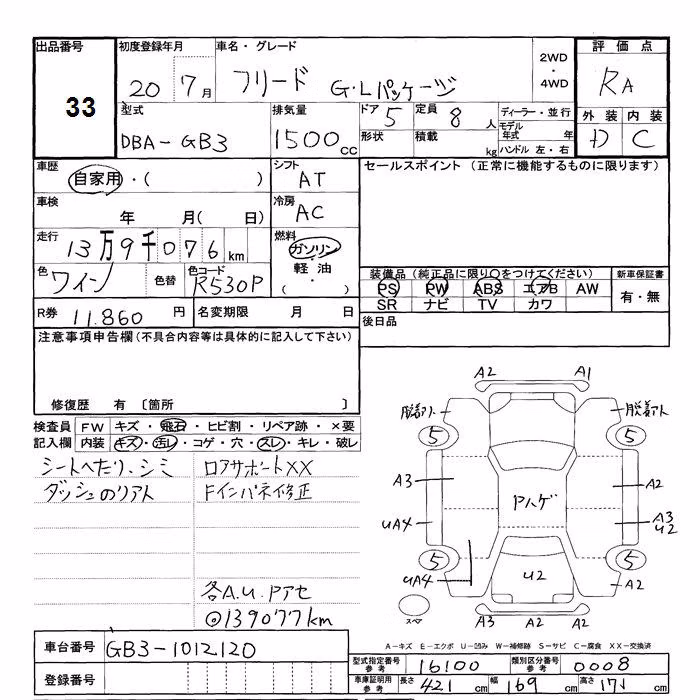 出品番号 33
初度登録年月 20 7月
車名・グレード フリード G・Lパッケージ
2WD・4WD
評価点 RA
外装 D 内装 C
型式 DBA-GB3
排気量 1500cc
ドア 5 定員 8人
形状 積載 kg
ディーラー・並行
モデル年式 年
ハンドル 左・右
車歴 自家用・( )
シフト AT
セールスポイント (正常に機能するものに限ります)
車検 年 月( 日)
冷房 AC
走行 13万9千076km
燃料 ガソリン
軽油
( ・ )
色 ワイン 色替 色コード R530P
装備品 (純正品に限り○をつけてください)
PS PW ABS エアB AW
SR ナビ TV カワ
新車保証書 有・無
R券 11.860円 名変期限 月 日
後日品
注意事項申告欄(不具合内容等は具体的に記入して下さい)
修復歴 有 〔箇所 〕
検査員記入欄
FW キズ・飛石・ヒビ割・リペア跡・×要
内装 キズ・汚レ・コゲ・穴・スレ・キレ・破レ
シートへたり、シミ ロアサポートXX
ダッシュのリアト Fインパネ修正
各A.U.Pアセ
◎139077km
A2 A1
脱着外 脱着外
5 5
A3 A2
Pハゲ
UA4 A3
U2
5 5
UA4 U2 A2
スペア
A3 A2 A2
A-キズ E-エクボ U-凹み W-補修跡 S-サビ C-腐食 XX-交換済
車台番号 GB3-1012120
登録番号
型式指定番号参考 16100 類別区分番号参考 0008
車庫証明用参考 長さ 421cm 幅 169cm 高さ 171cm